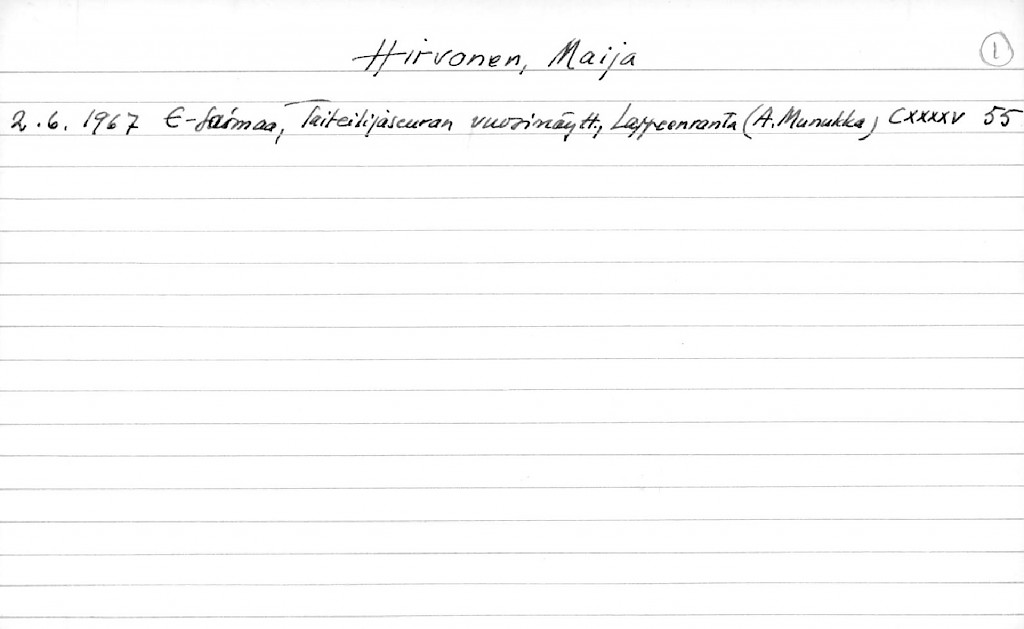 Hirvonen, Maija
1
2.6. 1967 E-Saimaa, Taiteilijaseuran vuosinäytt., Lappeenranta (A. Munukka) CXXXXV 55